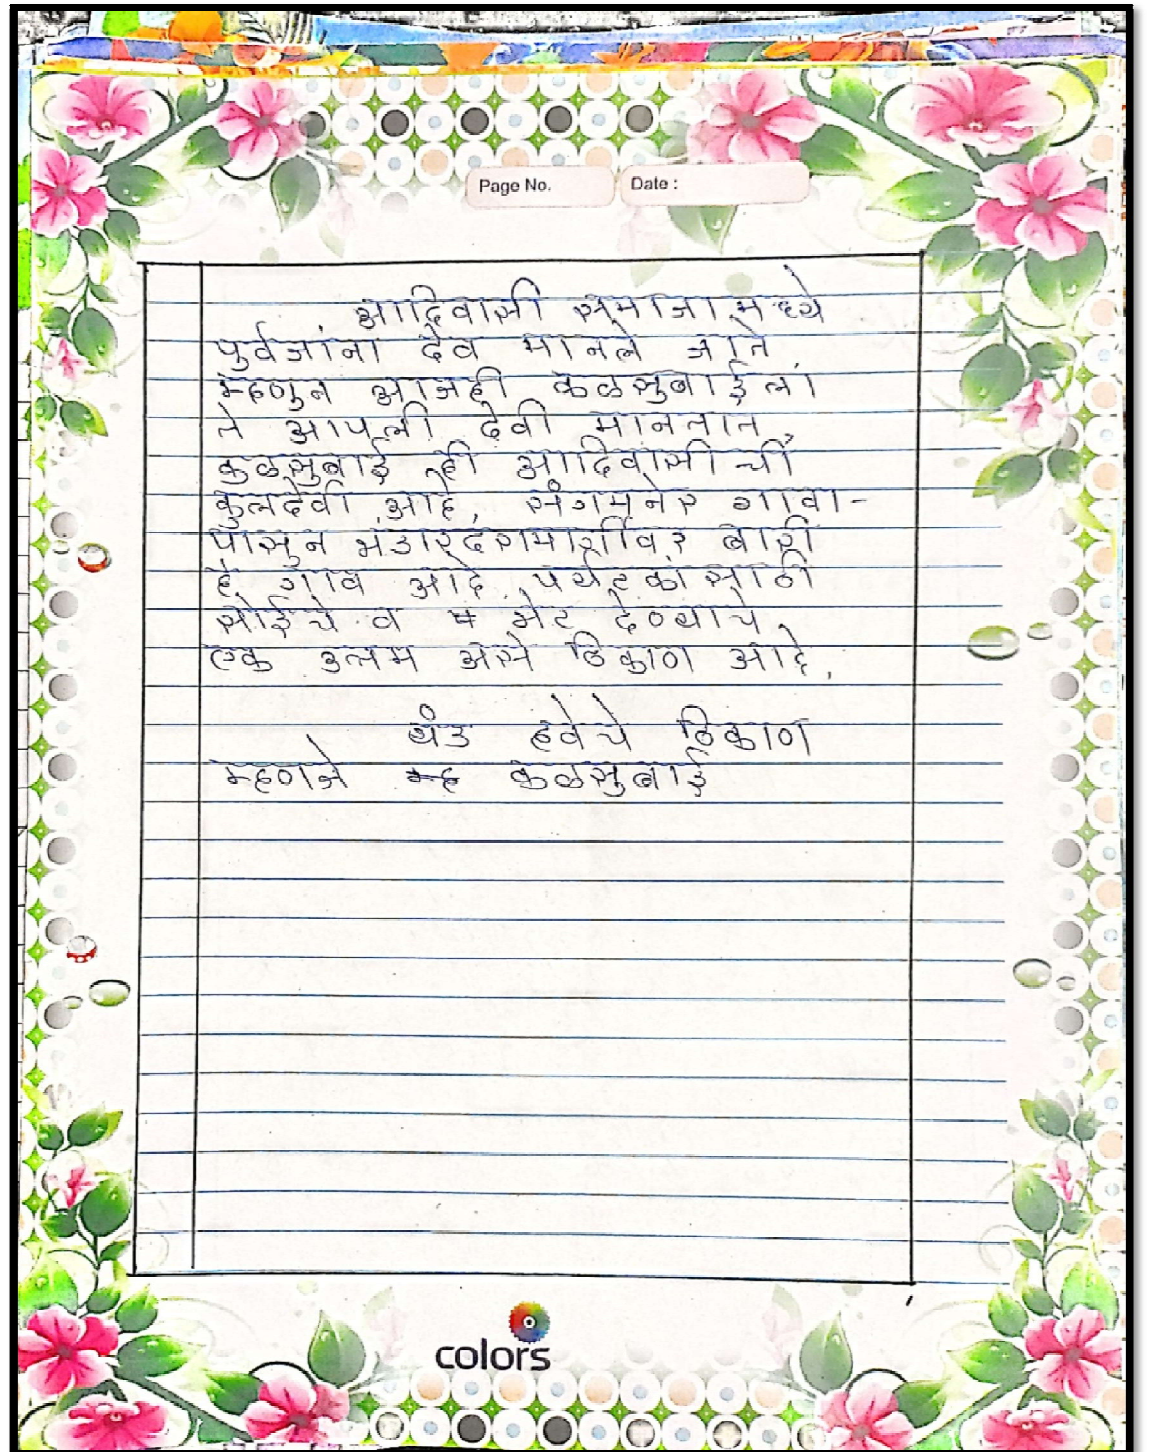 Page No. Date :
आदिवासी समाजामध्ये
पुर्वजांना देव मानले जाते.
म्हणुन आजही कळसुबाईला
ते आपली देवी मानतात,
कुळसुबाई ही आदिवासीची
कुलदेवी आहे, संगमनेर गावा-
पासुन भंडारदरामार्गावर बारी
हे गाव आहे. पर्यटकांसाठी
सोईचे व भेट देण्याचे
एक उत्तम असे ठिकाण आहे.
थंड हवेचे ठिकाण
म्हणजे म्ह कळसुबाई
colors